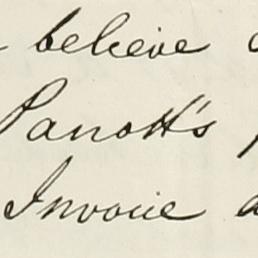 believe
Parrott's
Invoice